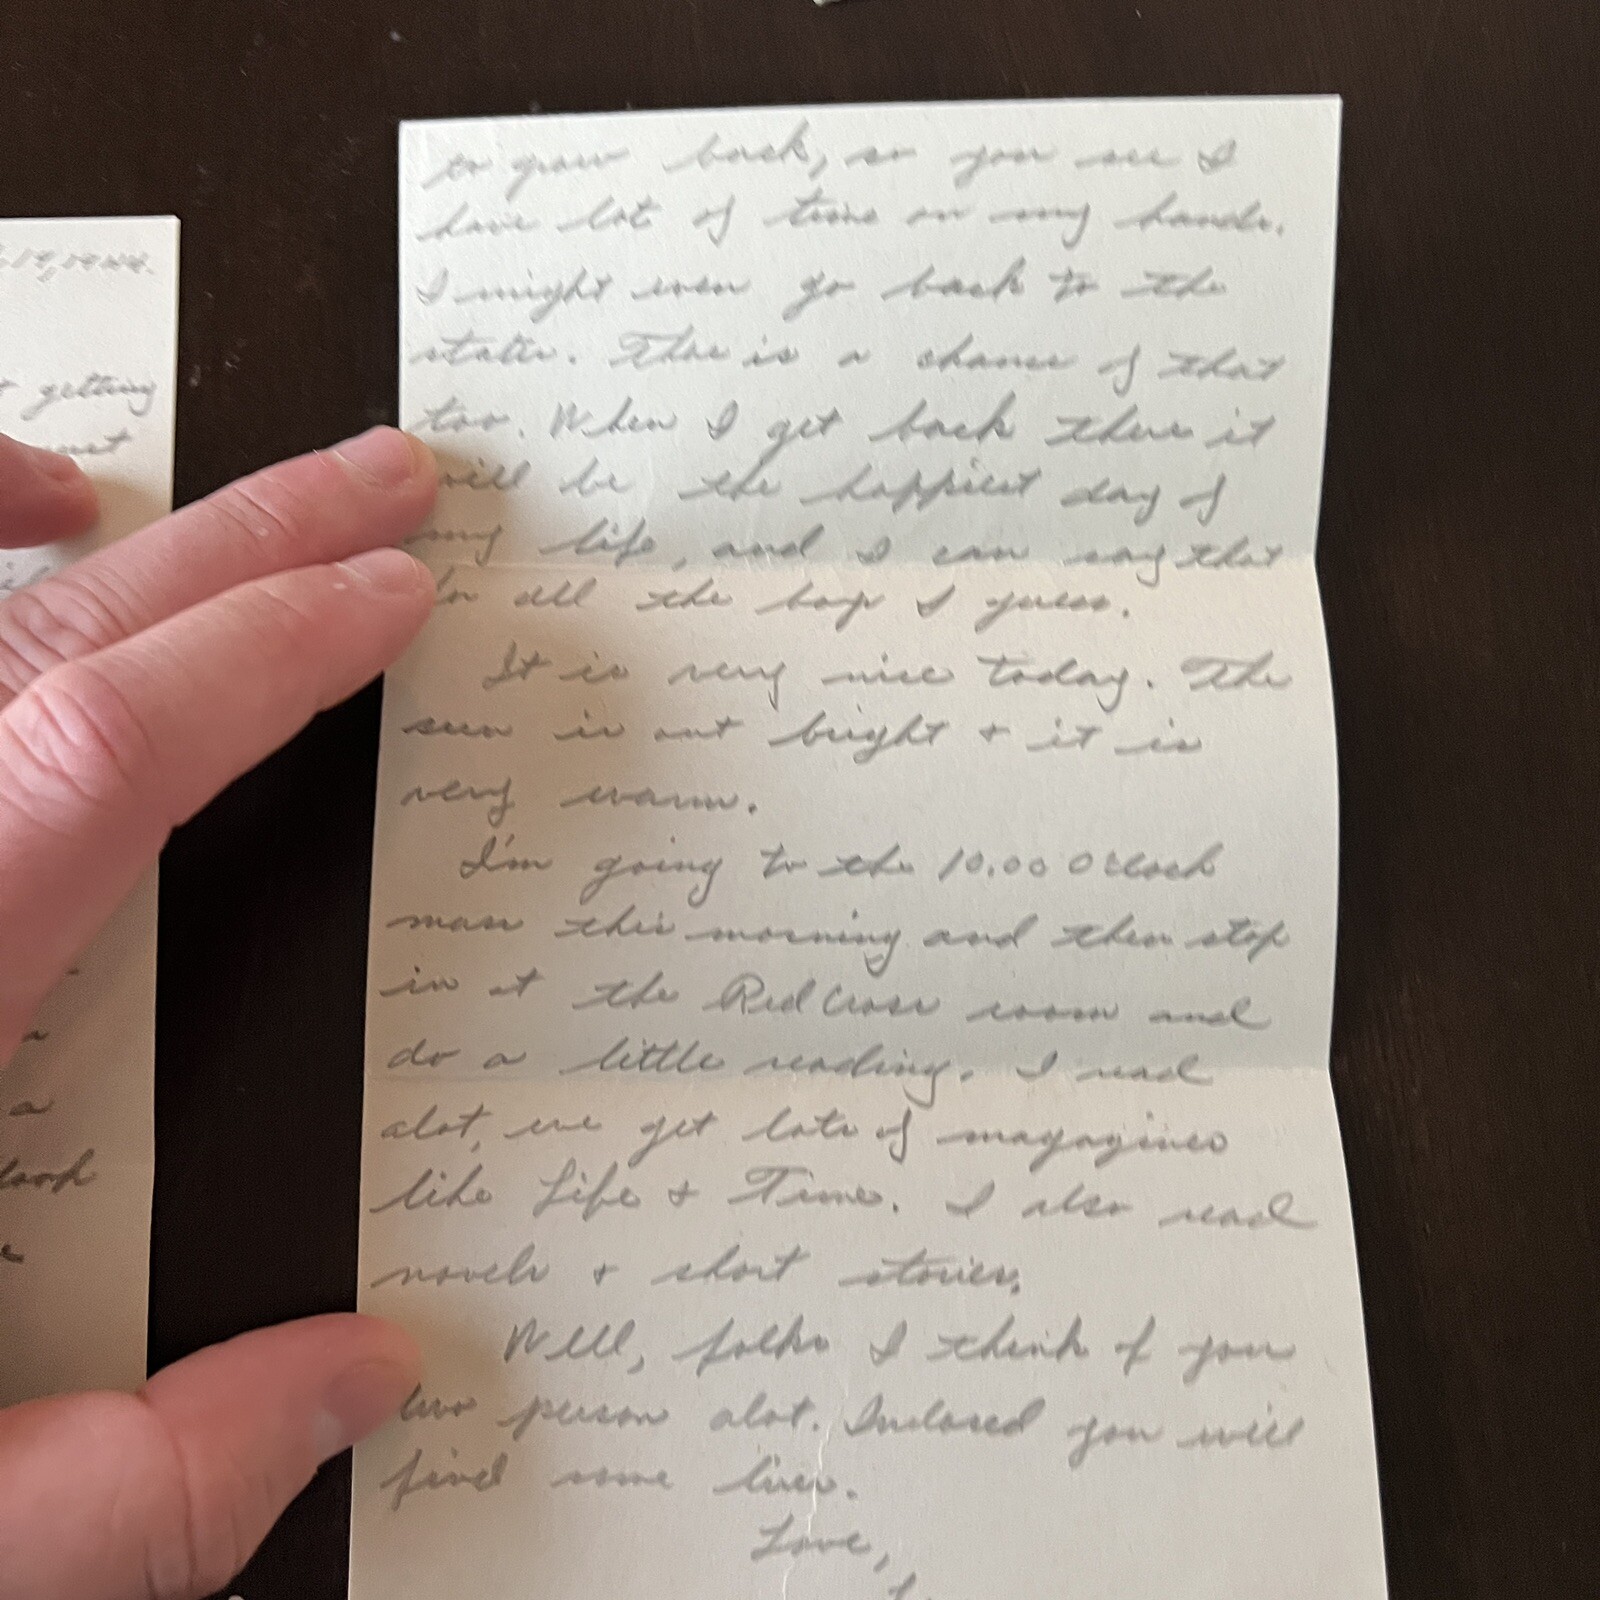 19, 1944.
getting
to grow back, so you see I
have lot of time on my hands.
I might even go back to the
states. There is a chance of that
too. When I get back there it
will be the happiest day of
my life, and I can say that
for all the boys I guess.
It is very nice today. The
sun is out bright + it is
very warm.
I'm going to the 10.00 O'clock
mass this morning and then stop
in at the Red Cross room and
do a little reading. I read
alot, we get lots of magazines
like Life + Time. I also read
novels + short stories.
Well, folks I think of you
two person alot. Inclosed you will
find some
Love,